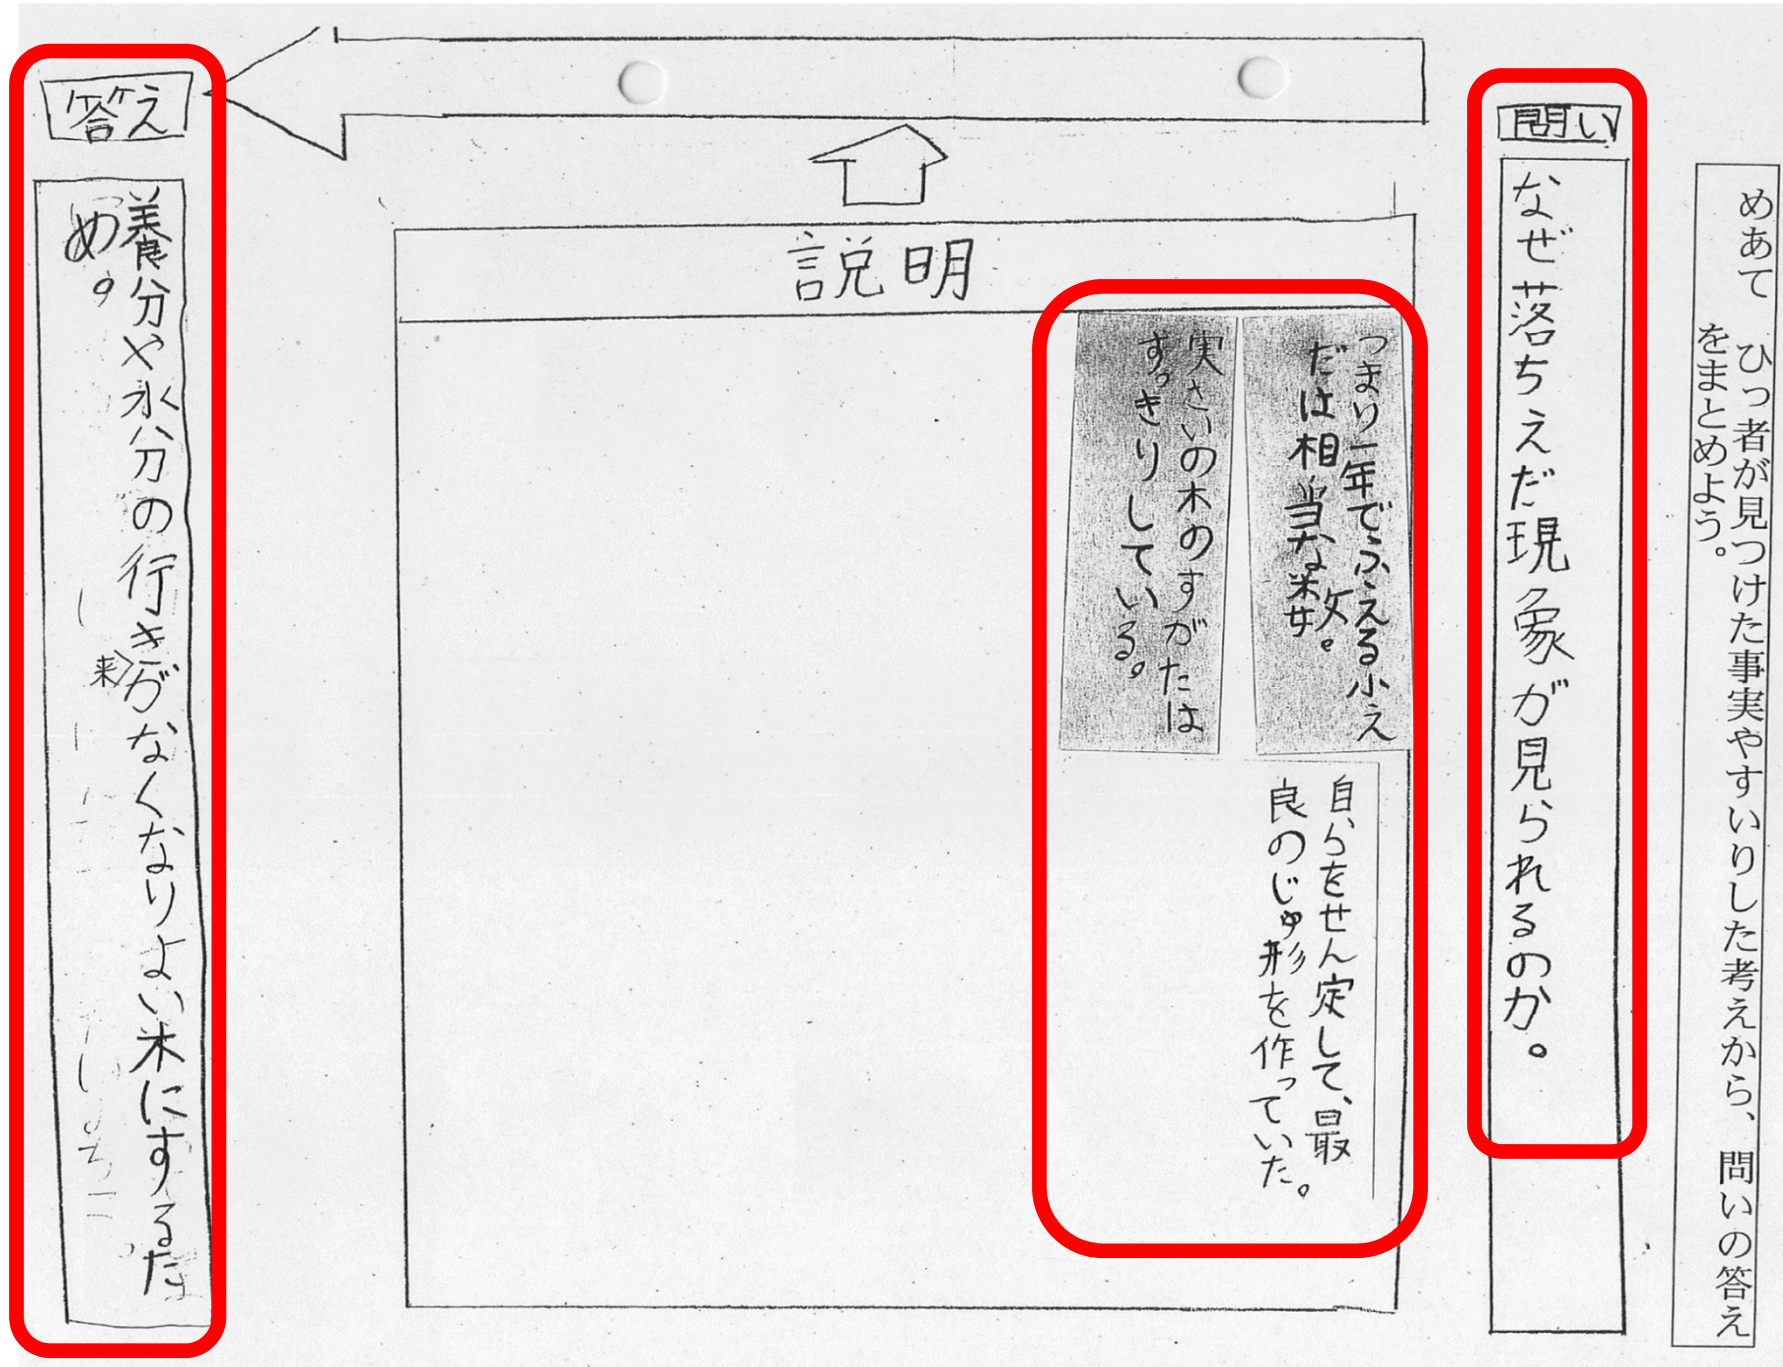 めあて　ひっ者が見つけた事実やすいりした考えから、問いの答え
をまとめよう。
問い
なぜ落ちえだ現象が見られるのか。
説明
つまり一年でふえる小え
だは相当な数。
実さいの木のすがたは
すっきりしている。
自らをせん定して、最
良のじゅ形を作っていた。
答え
養分や水分の行き来がなくなりよい木にするた
め。